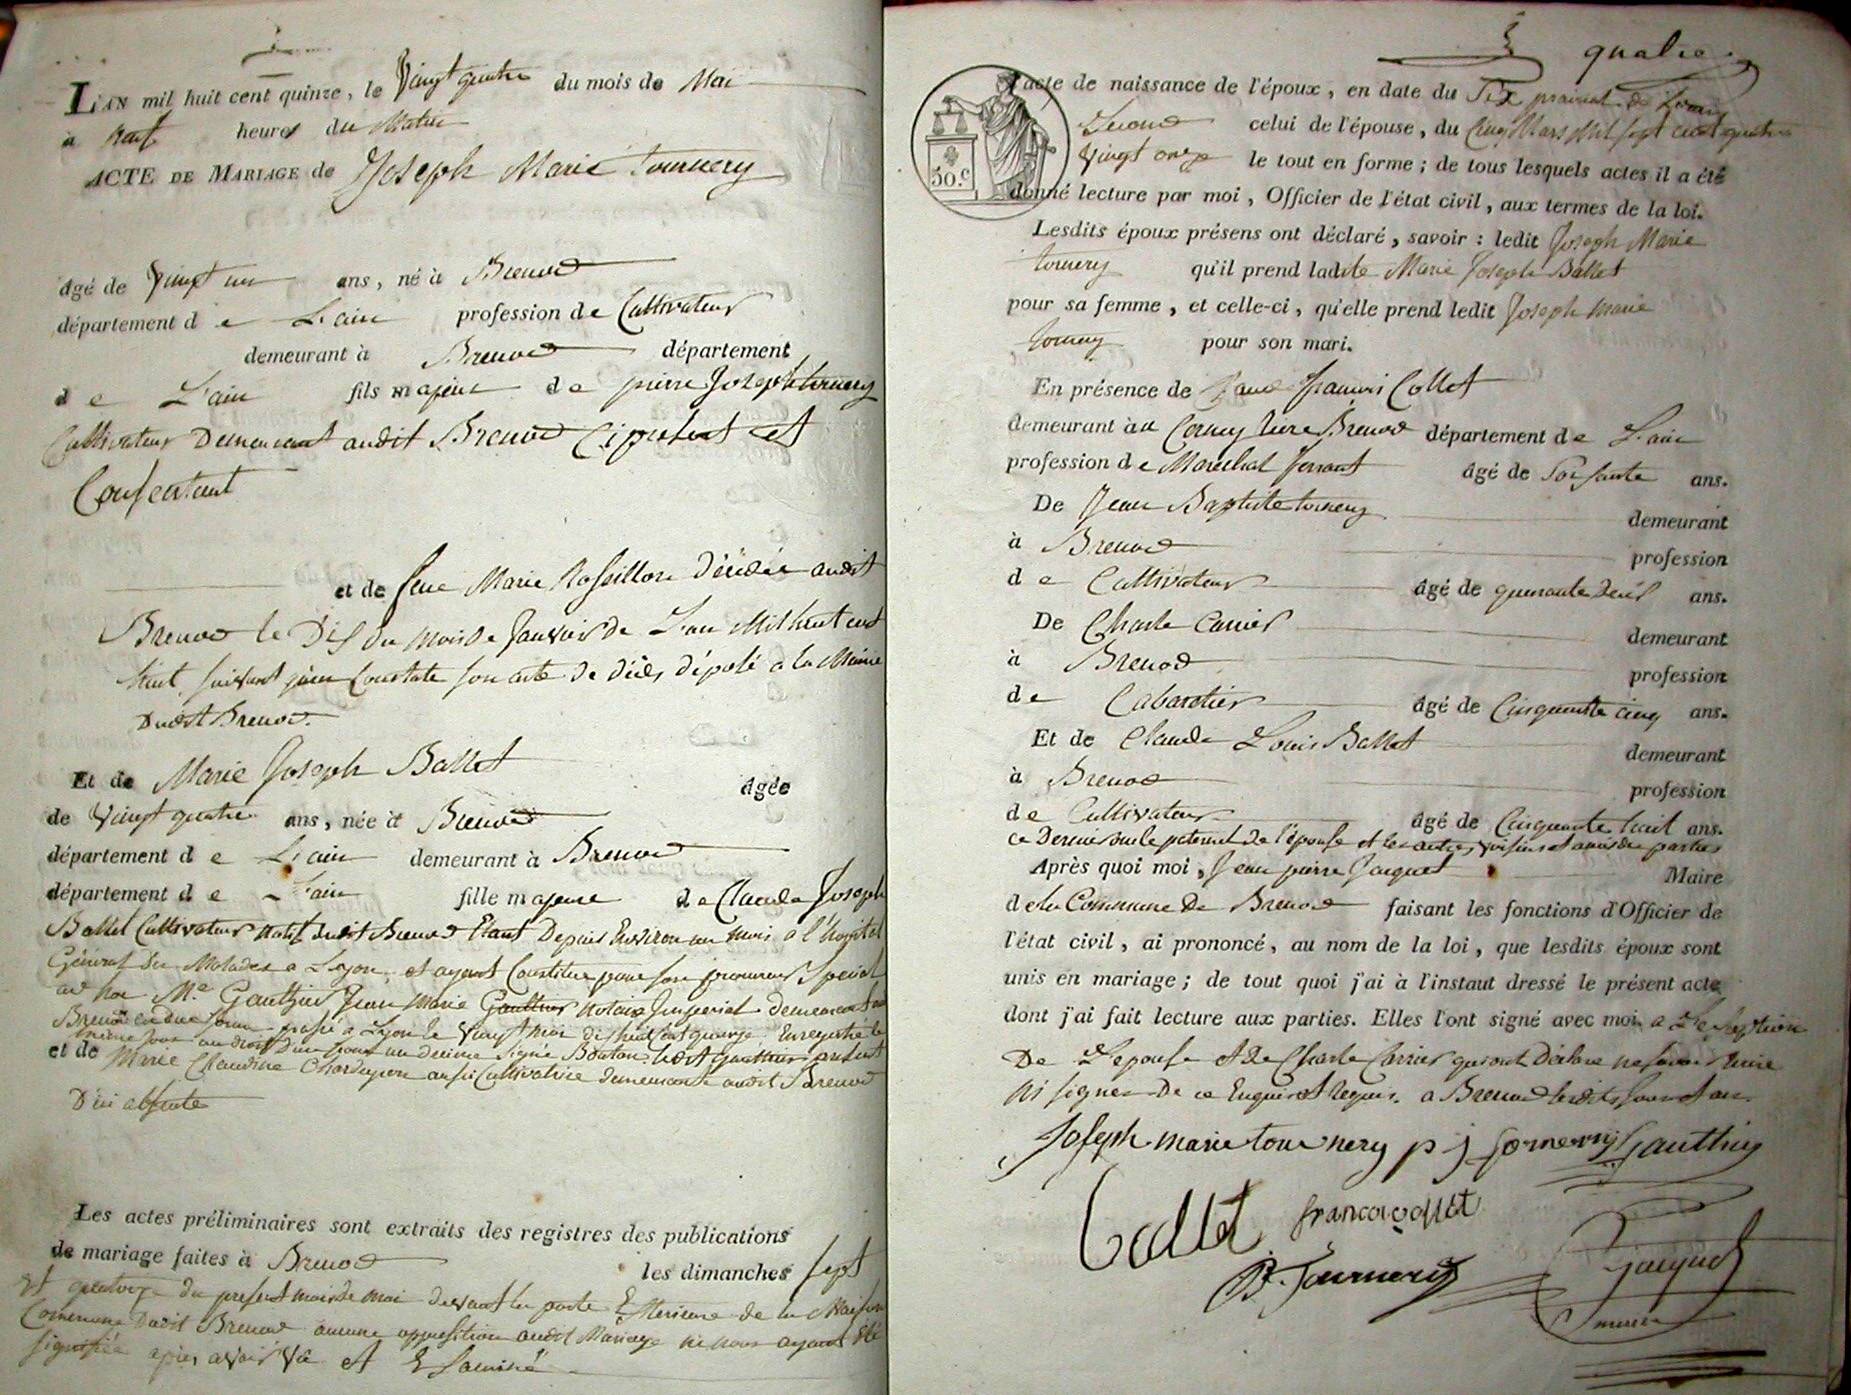 L'AN mil huit cent quinze, le vingt quatre du mois de Mai
à neuf heures du Matin
ACTE DE MARIAGE de Joseph Marie tournery
âgé de vingt un ans, né à Brenod
département de L'ain profession de Cultivateur
demeurant à Brenod département
de L'ain fils majeur de pierre Joseph tournery
Cultivateur Demeurant audit Brenod Ci présent et
Consentant
et de feue Marie Rosseillon Décédée audit
Brenod le Dix du mois de Janvier de L'an Mil huit cent
huit, suivant qu'en Constate son acte de décès, déposé a la Mairie
Dudit Brenod.
Et de Marie Joseph Ballet âgée
de vingt quatre ans, née à Brenod
département de L'ain demeurant à Brenod
département de L'ain fille majeure de Claude Joseph
Ballet Cultivateur natif dudit Brenod Etant Depuis Environ un mois a l'hopital
Général des Malades a Lyon, et ayant Constitué pour son procureur Spécial
ad hoc Me Gauthier Jean Marie Gauthier notaire Impérial demeurant a
Brenod en due forme passée a Lyon le vingt mai dix huit cent quinze, Enregistré le
même jour au droit D'un franc un decime Signé Bouton ledit Gauthier présent
et de Marie Claudine Chardeyron aussi Cultivatrice demeurante audit Brenod
D'ici absente
Les actes préliminaires sont extraits des registres des publications
de mariage faites à Brenod les dimanches sept
et quatorze du présent mois de mai devant la porte Extérieure de la Maison
Commune Dudit Brenod aucune opposition audit Mariage ne nous ayant été
signifiée après avoir vû et Examiné
quatre
50.c
l'acte de naissance de l'époux, en date du Six prairial de L'an
Second celui de l'épouse, du Cinq Mars Mil sept cent quatre
vingt onze le tout en forme; de tous lesquels actes il a été
donné lecture par moi, Officier de l'état civil, aux termes de la loi.
Lesdits époux présens ont déclaré, savoir : ledit Joseph Marie
tournery qu'il prend ladite Marie Joseph Ballet
pour sa femme, et celle-ci, qu'elle prend ledit Joseph Marie
tournery pour son mari.
En présence de françois Collet
demeurant à Brenod département de L'ain
profession de Marechal ferrant âgé de Soixante ans.
De Jean Baptiste tournery demeurant
à Brenod profession
de Cultivateur âgé de quarante deux ans.
De Charle Carrier demeurant
à Brenod profession
de Cabaretier âgé de Cinquante cinq ans.
Et de Claude Louis Ballet demeurant
à Brenod profession
de Cultivateur âgé de Cinquante huit ans.
ce Dernier oncle paternel de l'épouse et les autres, voisins et amis des parties
Après quoi moi, Jean pierre Jacquet Maire
de la Commune De Brenod faisant les fonctions d'Officier de
l'état civil, ai prononcé, au nom de la loi, que lesdits époux sont
unis en mariage; de tout quoi j'ai à l'instant dressé le présent acte
dont j'ai fait lecture aux parties. Elles l'ont signé avec moi a L'exception
De L'epouse et de Charle Carrier qui ont Déclaré ne savoir Ecrire
Ni signer De ce Enquis et requis. a Brenod lesdits jour et an.
Joseph marie tournery p j tornery Gauthier
Collet francoi collet
JB. Tournery Jacquet
maire